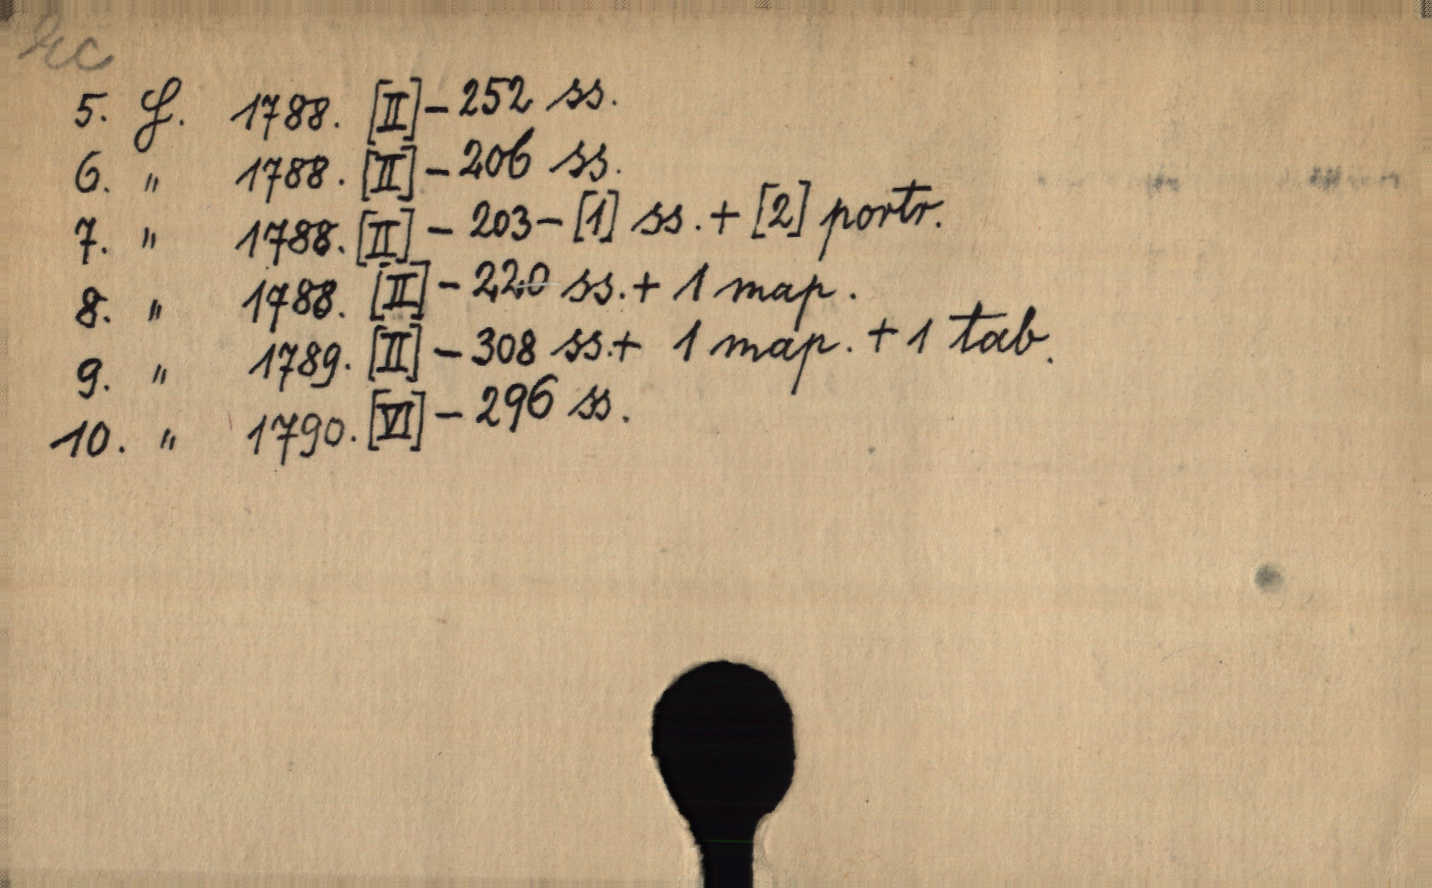 5. f. 1788. [II] - 252 ss.
6. " 1788. [II] - 206 ss.
7. " 1788. [II] - 203 - [1] ss. + [2] portr.
8. " 1788. [II] - 220 ss. + 1 map.
9. " 1789. [II] - 308 ss. + 1 map. + 1 tab.
10. " 1790. [VI] - 296 ss.